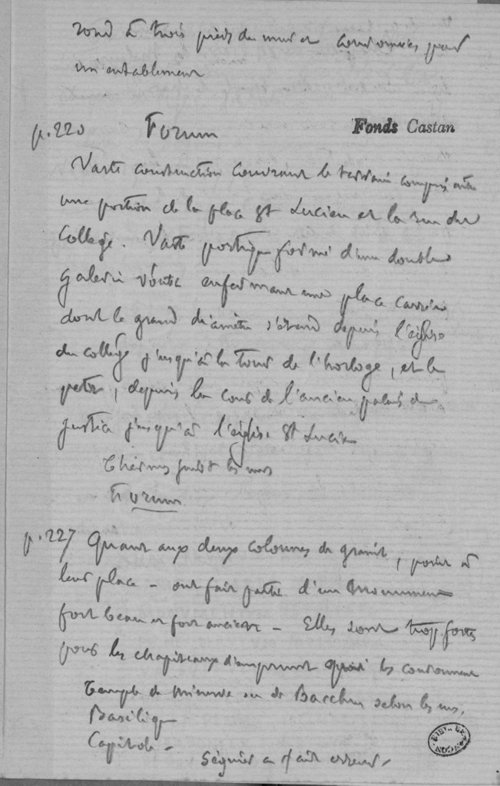 rond à trois pieds du mur et couronnées par
un entablement
p. 220 Forum
Fonds Castan
Vaste construction couvrant le terrain compris entre
une portion de la place St Lucien et la rue du
Collège. Vaste portique formé d'une double
galerie voûtée enfermant une place carrée
dont le grand diamètre s'étend depuis l'église
du collège jusqu'à la tour de l'horloge, et le
petit, depuis la cour de l'ancien palais de
justice jusqu'à l'église St Lucien
Thermes suivt les uns
Forum
p. 227 Quant aux deux colonnes de granit, point à
leur place - ont fait partie d'un Monument
fort beau et fort ancien - Elles sont trop fortes
pour les chapiteaux d'emprunt qui les couronnent
Temple de Minerve ou de Bacchus selon les uns,
Basilique
Capitole -
Séguier a fait erreur -